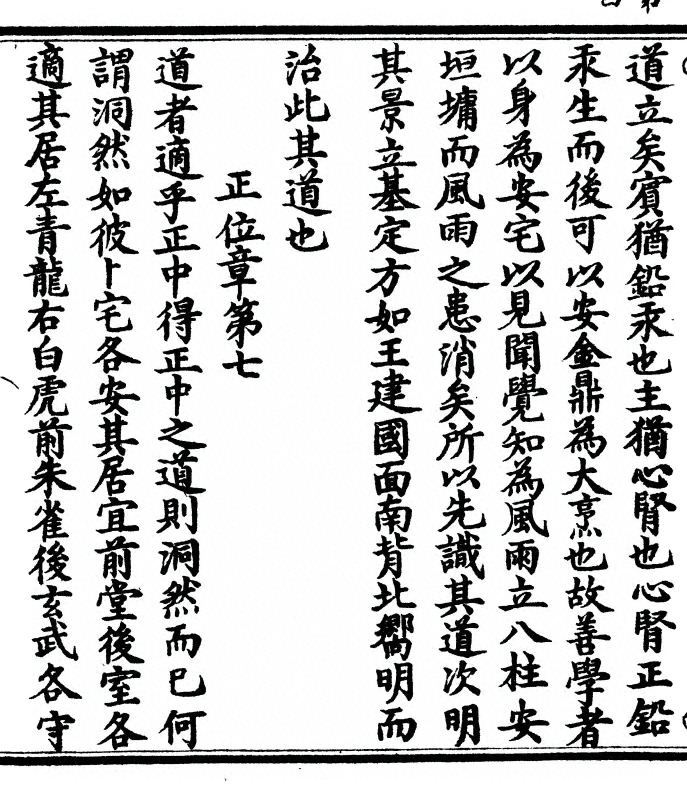 道立矣賓猶鉛汞也主猶心腎也心腎正鉛
汞生而後可以安金鼎為大烹也故善學者
以身為安宅以見聞覺知為風雨立八柱安
垣墉而風雨之患消矣所以先識其道次明
其景立基定方如王建國面南背北嚮明而
治此其道也
正位章第七
道者適乎正中得正中之道則洞然而已何
謂洞然如彼卜宅各安其居宜前堂後室各
適其居左青龍右白虎前朱雀後玄武各守